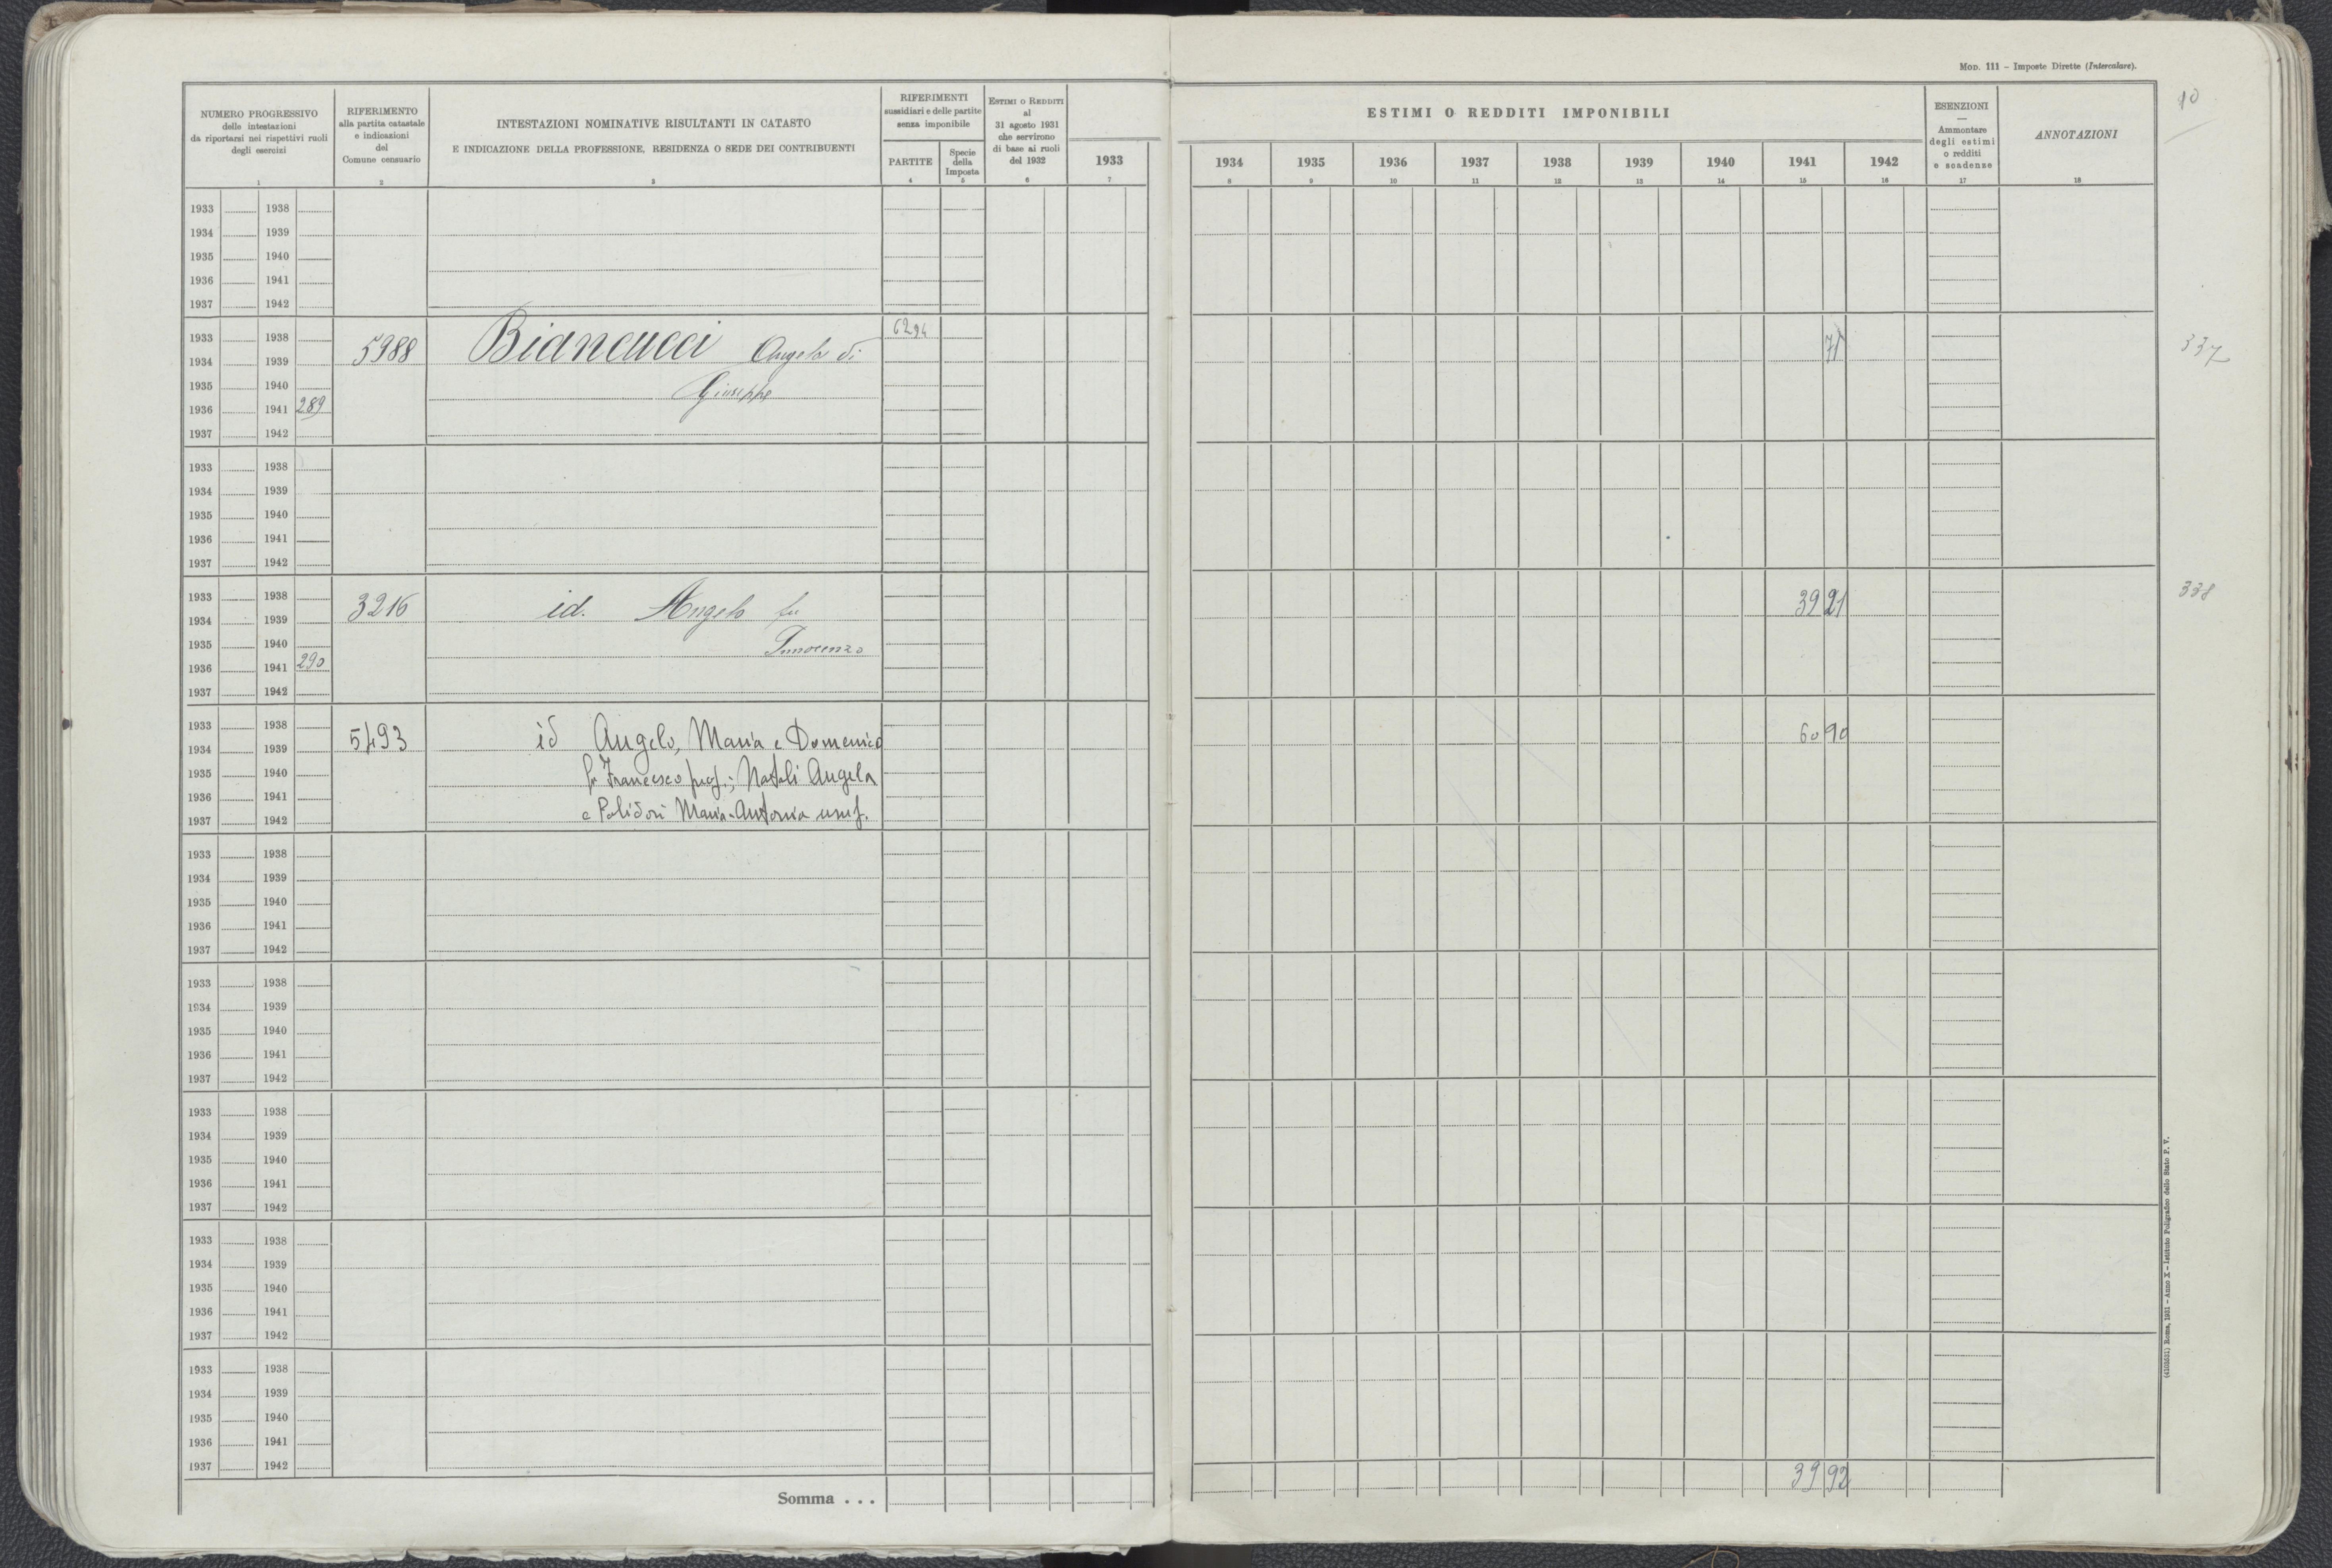 MOD. 111 – Imposte Dirette (Intercalare).
10
NUMERO PROGRESSIVO
delle intestazioni
da riportarsi nei rispettivi ruoli
degli esercizi
1
RIFERIMENTO
alla partita catastale
e indicazioni
del
Comune censuario
2
INTESTAZIONI NOMINATIVE RISULTANTI IN CATASTO
E INDICAZIONE DELLA PROFESSIONE, RESIDENZA O SEDE DEI CONTRIBUENTI
3
RIFERIMENTI
sussidiari e delle partite
senza imponibile
PARTITE
4
Specie
della
Imposta
5
ESTIMI O REDDITI
al
31 agosto 1931
che servirono
di base ai ruoli
del 1932
6
1933
7
ESTIMI O REDDITI IMPONIBILI
1934 1935 1936 1937 1938 1939 1940 1941 1942
8 9 10 11 12 13 14 15 16
ESENZIONI
—
Ammontare
degli estimi
o redditi
e scadenze
17
ANNOTAZIONI
18
1933 1938
1934 1939
1935 1940
1936 1941
1937 1942
1933 1938 6294
1934 1939 5988 Biancucci Angelo di 71 337
1935 1940 Giuseppe
1936 1941 289
1937 1942
1933 1938
1934 1939
1935 1940
1936 1941
1937 1942
1933 1938 338
1934 1939 3216 id. Angelo fu 39 21
1935 1940 Innocenzo
1936 1941 290
1937 1942
1933 1938
1934 1939 5493 id Angelo, Maria e Domenico 60 90
1935 1940 fu Francesco prop.; Natali Angela
1936 1941
1937 1942 e Polidori Maria-Antonia usuf.
1933 1938
1934 1939
1935 1940
1936 1941
1937 1942
1933 1938
1934 1939
1935 1940
1936 1941
1937 1942
1933 1938
1934 1939
1935 1940
1936 1941
1937 1942
1933 1938
1934 1939
1935 1940
1936 1941
1937 1942
1933 1938
1934 1939
1935 1940
1936 1941
1937 1942
Somma . . . 39 92
Roma, 1931 – Anno X – Istituto Poligrafico dello Stato P. V.